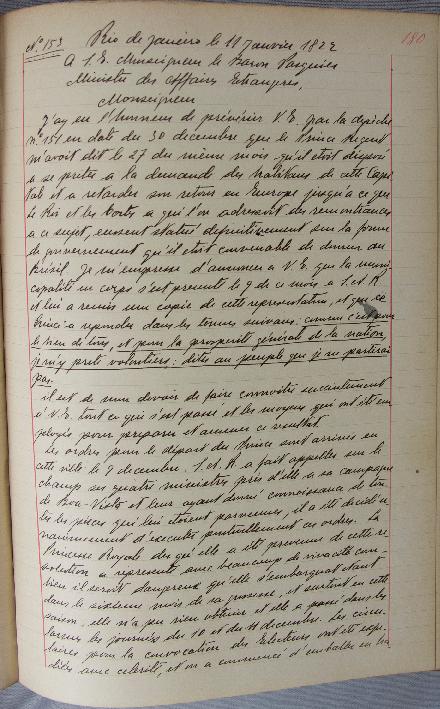 180
Nº 153 Rio de Janeiro le 11 Janvier 1822
A S. E. Monseigneur le Baron Pasquier
Ministre des Affaires Etrangeres,
Monseigneur
J'ay eu l'honneur de prévénir V. E. par la depêche
nº 151 en date du 30 decembre que le Prince Regent
m'avoit dit le 27 du même mois qu'il etoit disposé
a se preter a la demande des habitans de cette Capi
tale et a retarder son retour en Europe jusqu'a ce que
le Roi et les Cortes a qui l'on adressoit des remontrances
a ce sujet, eussent statué definitivement sur la forme
de gouvernement qu'il etoit convenable de donner au
Brésil. Je m'empresse d'annoncer a V. E. que la muni
cipalité en corps s'est presenté le 9 de ce mois a S. A. R.
et lui a remis une copie de cette representation, et que ce
Prince a repondu dans les termes suivans: comme c'est pour
le bien de tous, et pour la prosperité générale de la nation,
je m'y prete volontiers: dites au peuple que je ne partirai
pas.
il est de mon devoir de faire connoitre succintement
a V. E. tout ce qui s'est passé et les moyens qui ont été em
ployés pour preparer et amener ce resultat.
Les ordres pour le départ du Prince sont arrivés en
cette ville le 9 decembre. S. A. R. a fait appeller sur le
champ ses quatre ministres près d'elle a sa campagne
de Boa-Vista et leur ayant donné connoissance de tou
tes les pieces qui lui etoient parvenues, il a été decidé u
nanimement d'executer ponctuellement ces ordres. La
Princesse Royale des qu'elle a été prevenue de cette re
solution a representé avec beaucoup de vivacité com
bien il seroit dangereux qu'elle s'embarquat etant
dans le sixieme mois de sa grossesse, et surtout en cette
saison, elle n'a pu rien obtenir et elle a passé dans les
larmes les journées du 10 et du 11 decembre. Les circu
laires pour la convocation des Electeurs ont été expe
diées avec celerité, et on a commencé d'emballer en